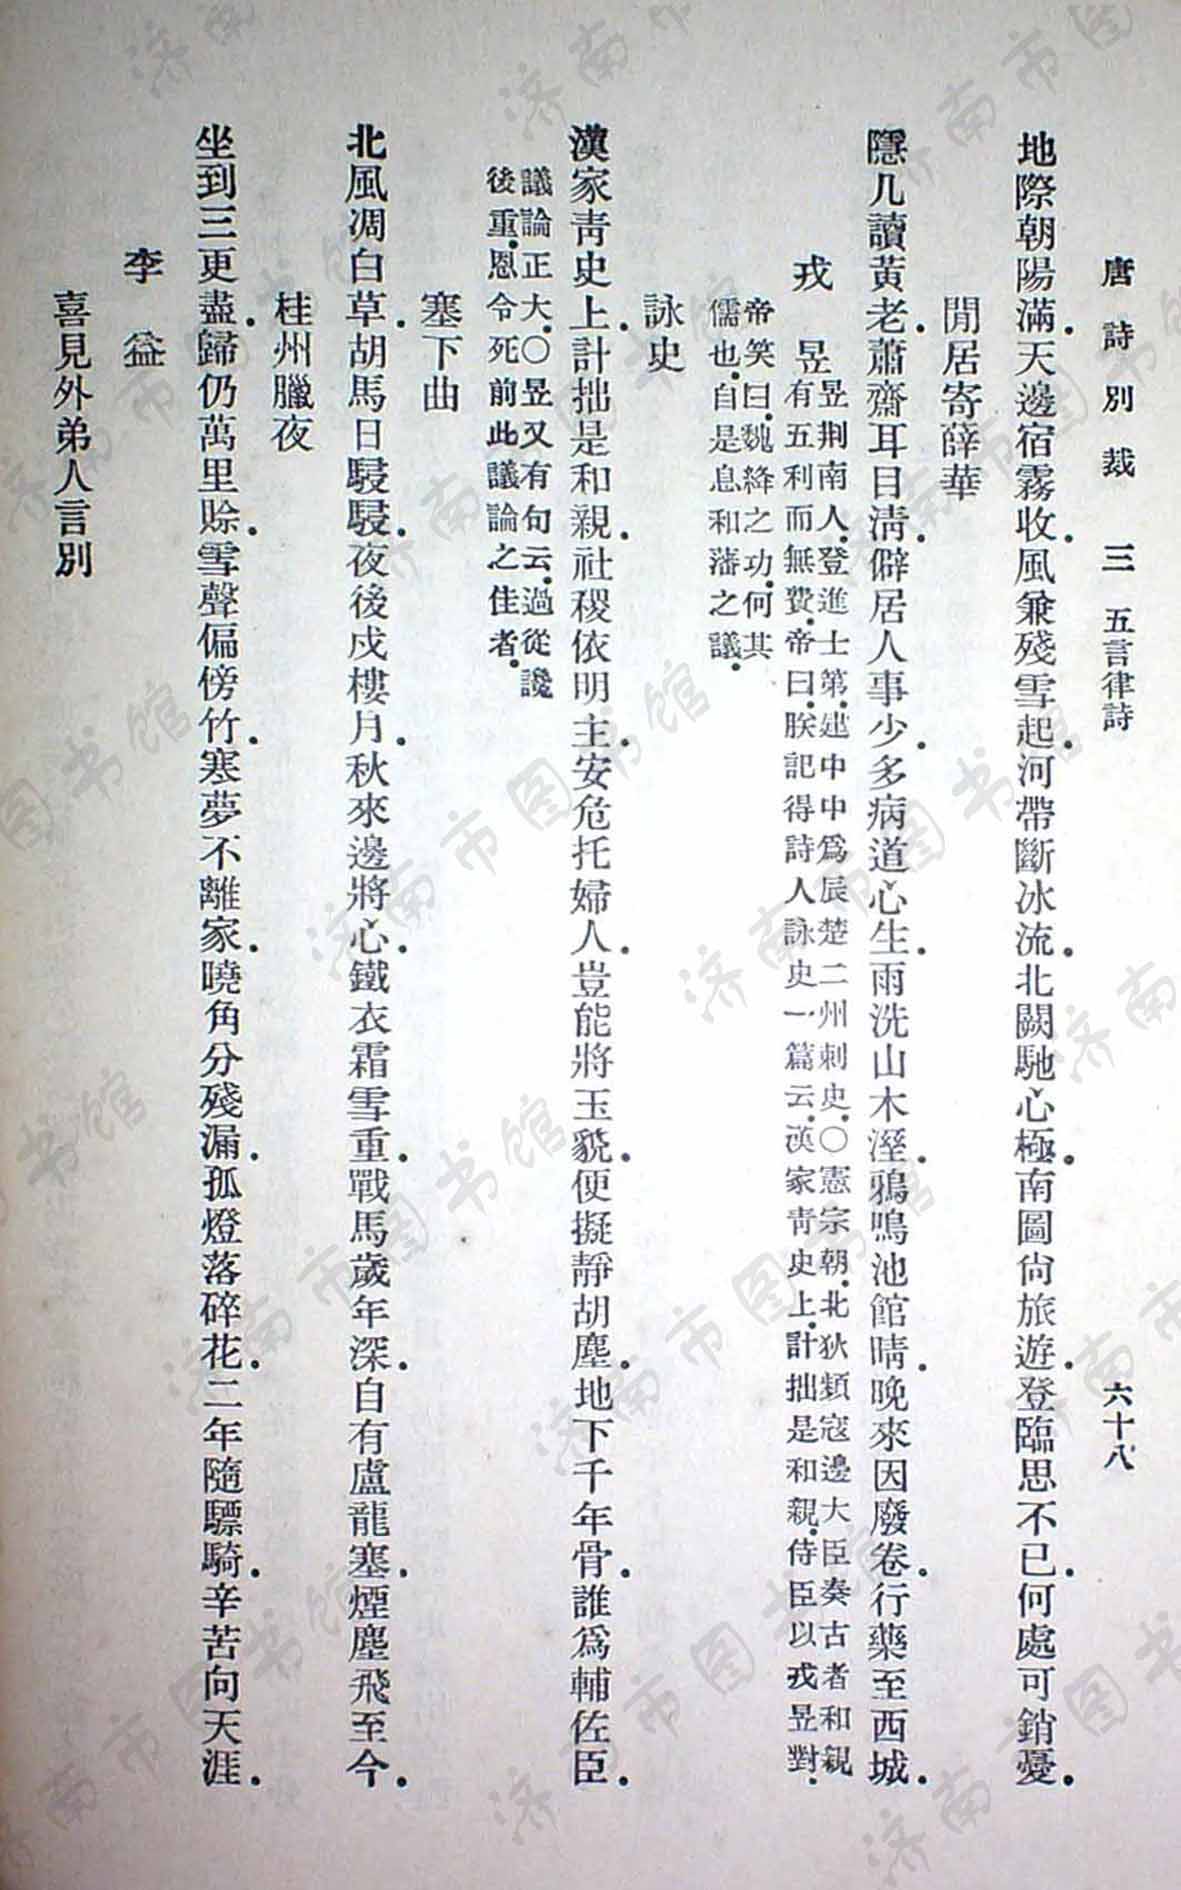 唐詩別裁　三　五言律詩　六十八
地際朝陽滿．天邊宿霧收．風兼殘雪起．河帶斷冰流．北闕馳心極．南圖尙旅遊．登臨思不已．何處可銷憂．
閒居寄薛華
隱几讀黃老．蕭齋耳目淸．僻居人事少．多病道心生．雨洗山木溼．鴉鳴池館晴．晚來因廢卷．行藥至西城．
戎昱
昱荆南人．登進士第．建中中爲辰楚二州刺史．〇憲宗朝．北狄頻寇邊大臣奏古者和親
有五利而無費．帝曰．朕記得詩人詠史一篇云．漢家靑史上．計拙是和親．侍臣以戎昱對．
帝笑曰．魏絳之功．何其
儒也．自是息和藩之議．
詠史
漢家靑史上．計拙是和親．社稷依明主．安危托婦人．豈能將玉貌．便擬靜胡塵．地下千年骨．誰爲輔佐臣．
議論正大．〇昱又有句云．過從讒
後重．恩令死前此議論之佳者．
塞下曲
北風凋白草．胡馬日駸駸．夜後戍樓月．秋來邊將心．鐵衣霜雪重．戰馬歲年深．自有盧龍塞．煙塵飛至今．
桂州臘夜
坐到三更盡．歸仍萬里賒．雪聲偏傍竹．寒夢不離家．曉角分殘漏．孤燈落碎花．二年隨驃騎．辛苦向天涯．
李益
喜見外弟人言別
济南市图书馆